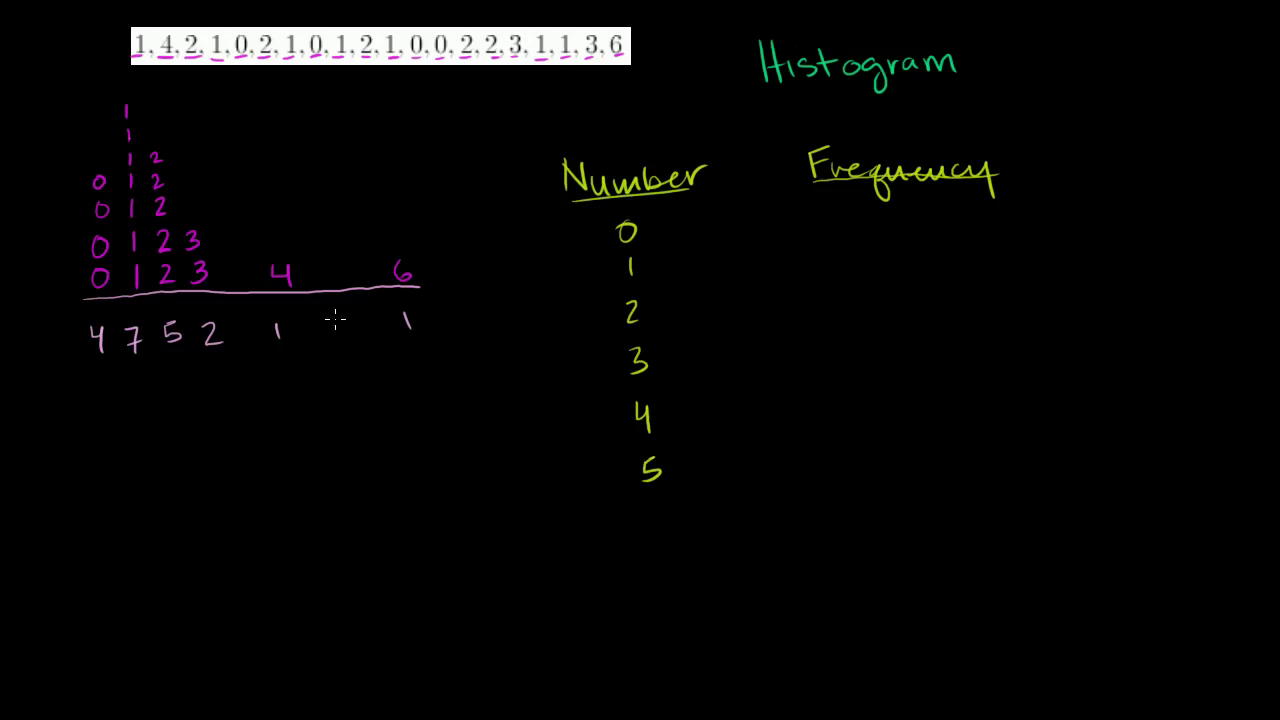 1, 4, 2, 1, 0, 2, 1, 0, 1, 2, 1, 0, 0, 2, 2, 3, 1, 1, 3, 6
Histogram
1
1
1 2
0 1 2
0 1 2
0 1 2 3
0 1 2 3 4 6
4 7 5 2 1 1
Number Frequency
0
1
2
3
4
5